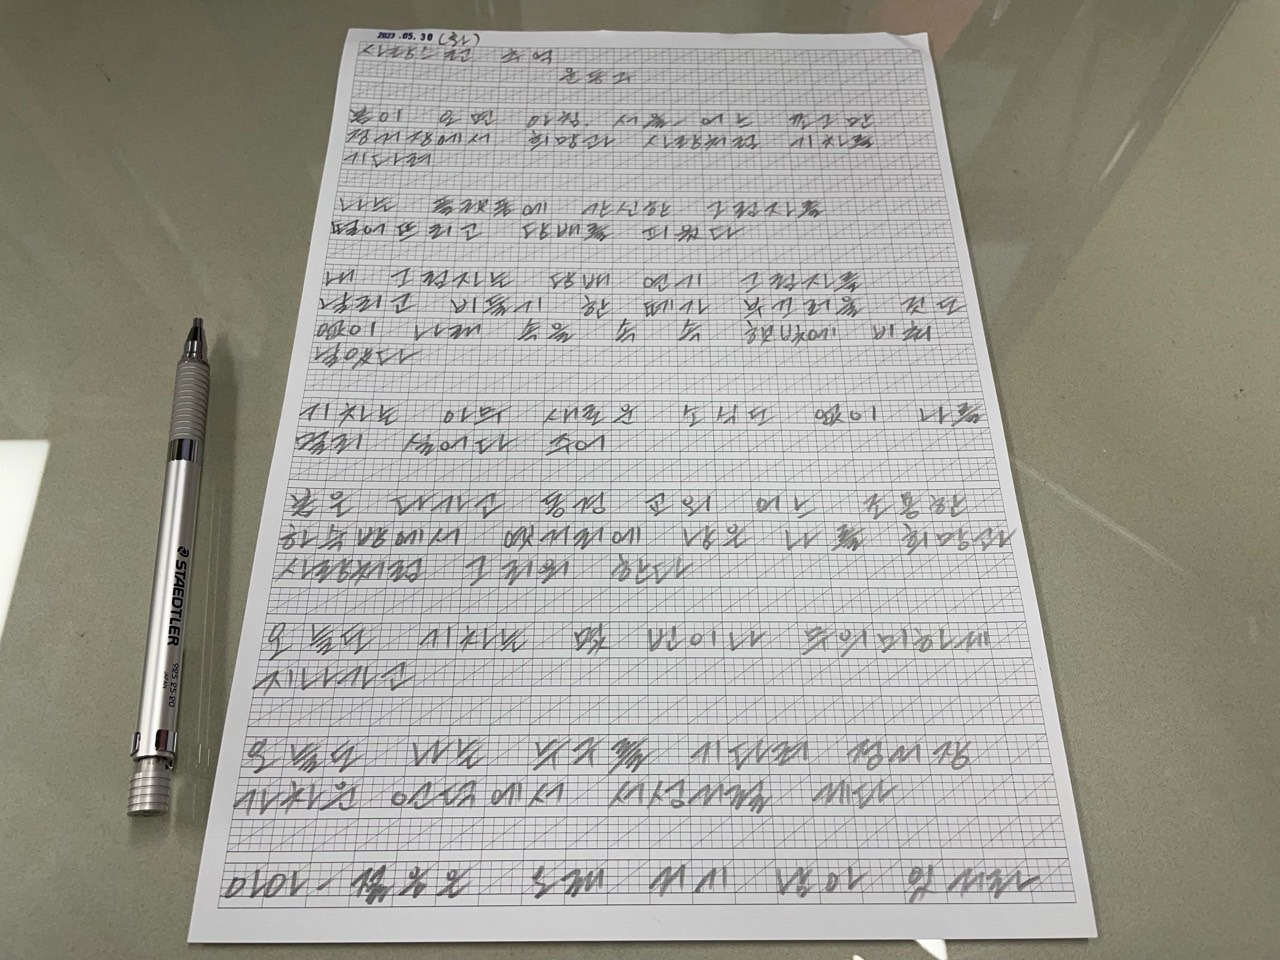 2023.05.30(화)
사랑스런 추억
윤동주
봄이 오던 아침, 서울 어느 쪼그만
정거장에서 희망과 사랑처럼 기차를
기다려
나는 플랫폼에 간신한 그림자를
떨어뜨리고 담배를 피웠다
내 그림자는 담배 연기 그림자를
날리고 비둘기 한 떼가 부끄러울 것도
없이 나래 속을 속 속 햇빛에 비춰
날았다
기차는 아무 새로운 소식도 없이 나를
멀리 실어다 주어
봄은 다 가고 동경 교외 어느 조용한
하숙방에서 옛거리에 남은 나를 희망과
사랑처럼 그리워한다
오늘도 기차는 몇 번이나 무의미하게
지나가고
오늘도 나는 누구를 기다려 정거장
가까운 언덕에서 서성거릴 게다
아아 - 젊음은 오래 거기 남아 있거라
STAEDTLER 925 25 20